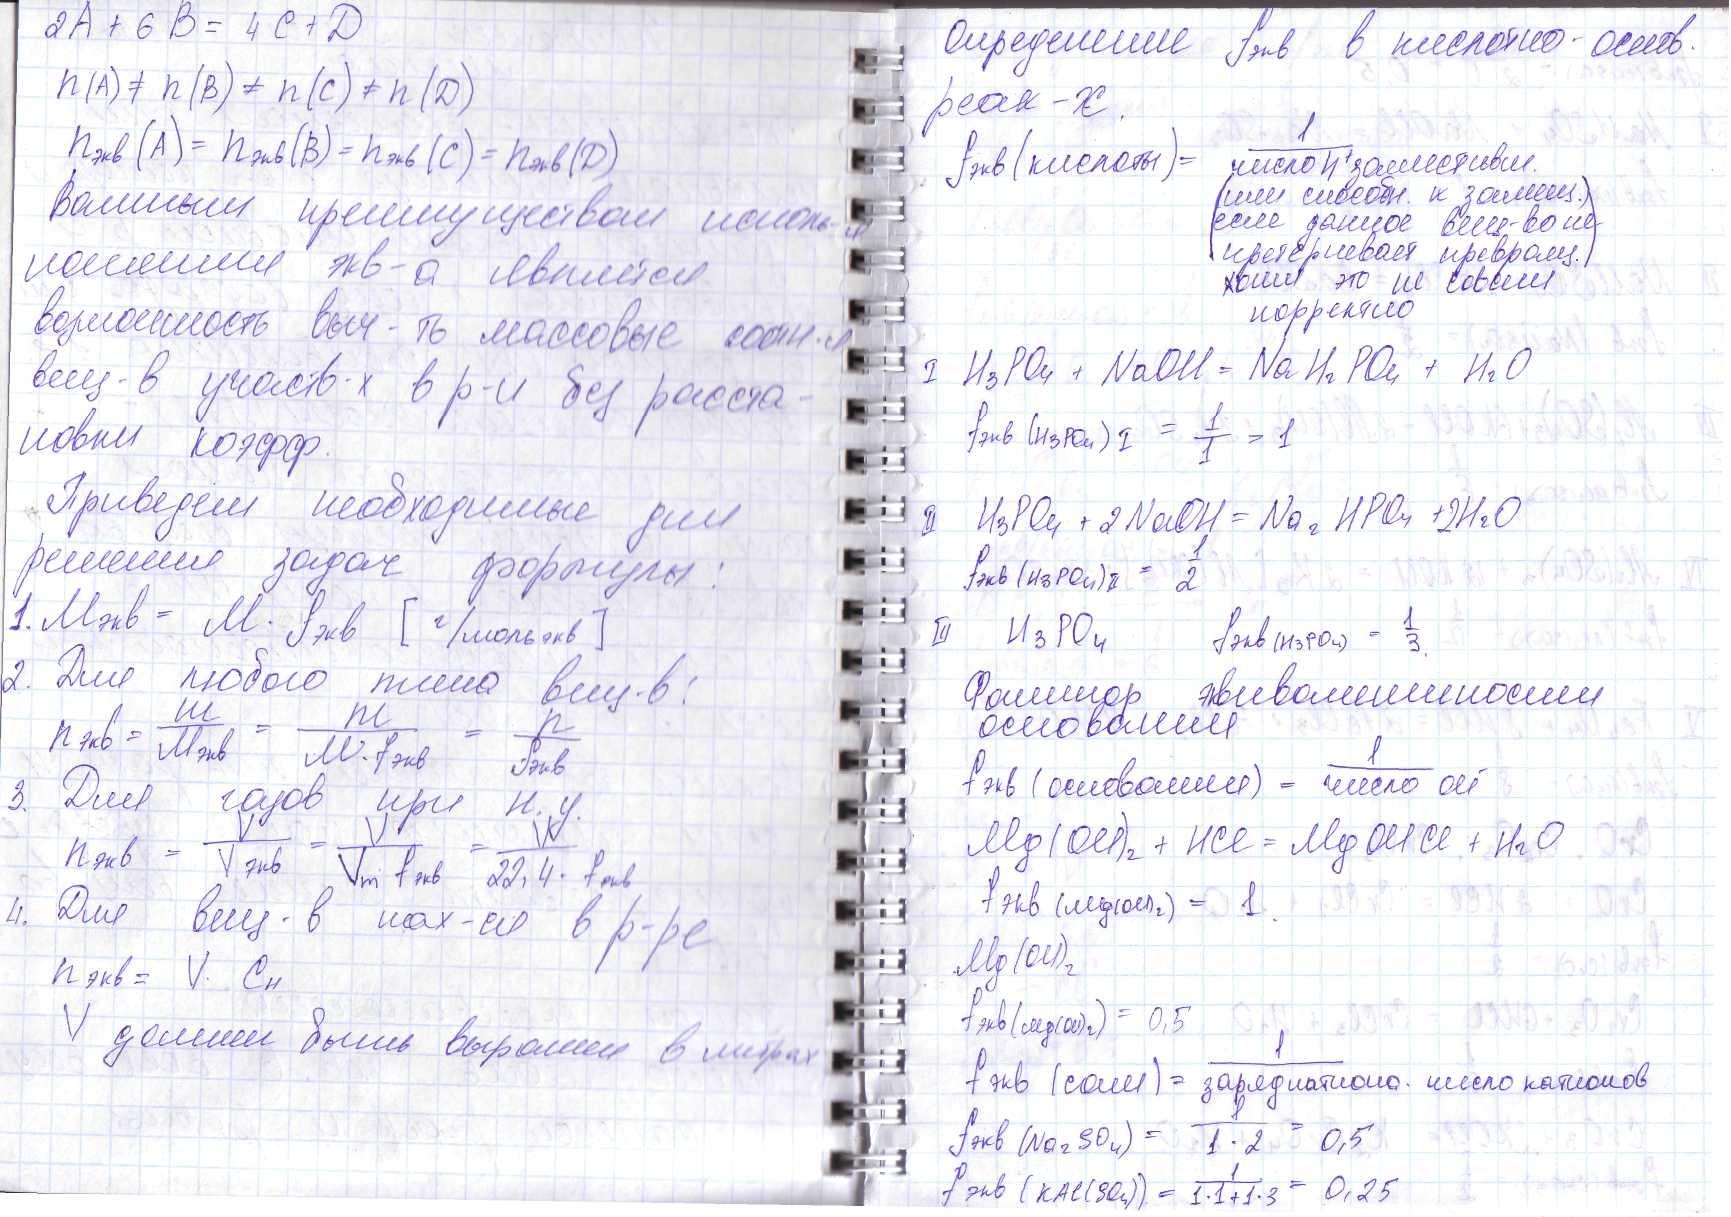 2A + 6B = 4C + D
n(A) ≠ n(B) ≠ n(C) ≠ n(D)
nэкв(A) = nэкв(B) = nэкв(C) = nэкв(D)
Важным преимуществом исполь-
экв-а является
возможность выч-ть массовые соотн-я
вещ-в участв-х в р-и без расста-
новки коэфф.
Приведем необходимые для
решения задач формулы:
1. Mэкв = M · fэкв [г/моль экв]
2. Для любого типа вещ-в:
nэкв = m/Mэкв = m/(M · fэкв) = n/fэкв
3. Для газов при н.у.
nэкв = V/Vэкв = V/(Vm fэкв) = V/(22,4 · fэкв)
4. Для вещ-в нах-ся в р-ре
nэкв = V · Cн
V должен быть выражен в литрах
Определение fэкв в кислотно-основ.
реак-х.
fэкв (кислоты) = 1/число H⁺ заместивш.
(или способн. к замещ.)
если данное вещ-во не
претерпевает превращ.)
хотя это не совсем
корректно
I H3PO4 + NaOH = NaH2PO4 + H2O
fэкв (H3PO4) I = 1/1 = 1
II H3PO4 + 2NaOH = Na2HPO4 + 2H2O
fэкв (H3PO4) II = 1/2
III H3PO4 fэкв (H3PO4) = 1/3.
Фактор эквивалентности
основания
fэкв (основания) = 1/число OH⁻
Mg(OH)2 + HCl = MgOHCl + H2O
fэкв (Mg(OH)2) = 1.
Mg(OH)2
fэкв (Mg(OH)2) = 0,5
fэкв (соли) = 1/заряд катиона · число катионов
fэкв (Na2SO4) = 1/(1 · 2) = 0,5
fэкв (KAl(SO4)) = 1/(1·1+1·3) = 0,25